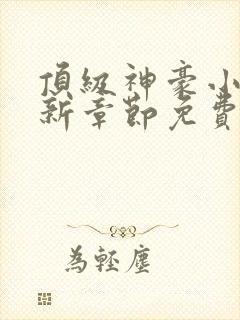 頂級神豪小
新章節免費
為輕塵